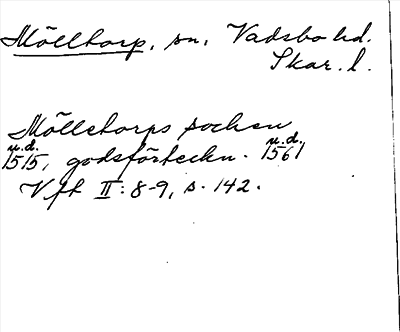 Mölltorp, sn, Vadsbo hd.
Skar. l.
Mölletorps socken
u.d. u.d.
1515, godsförteckn. 1561
Vft II: 8-9, s. 142.